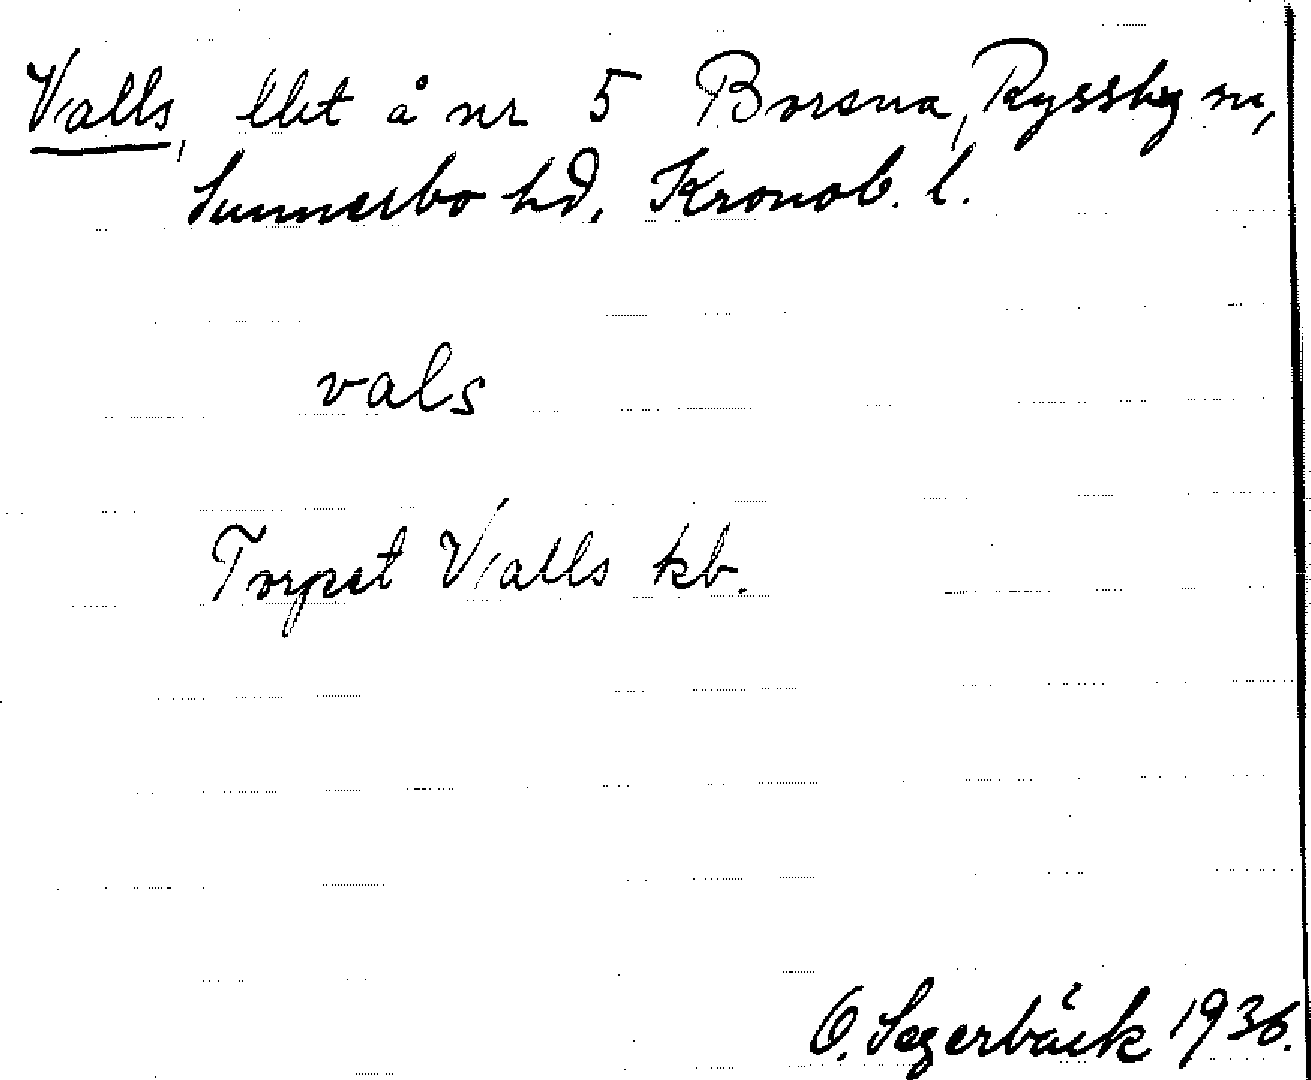 Valls, lht å nr 5 Borsna, Ryssby sn,
Sunnerbo hd, Kronob. l.
vals
Torpet Valls kb.
O. Segerbäck 1936.